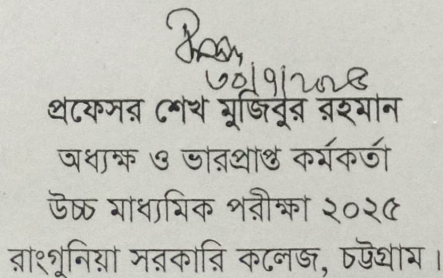 ৩০/৭/২০২৫
প্রফেসর শেখ মুজিবুর রহমান
অধ্যক্ষ ও ভারপ্রাপ্ত কর্মকর্তা
উচ্চ মাধ্যমিক পরীক্ষা ২০২৫
রাংগুনিয়া সরকারি কলেজ, চট্টগ্রাম।